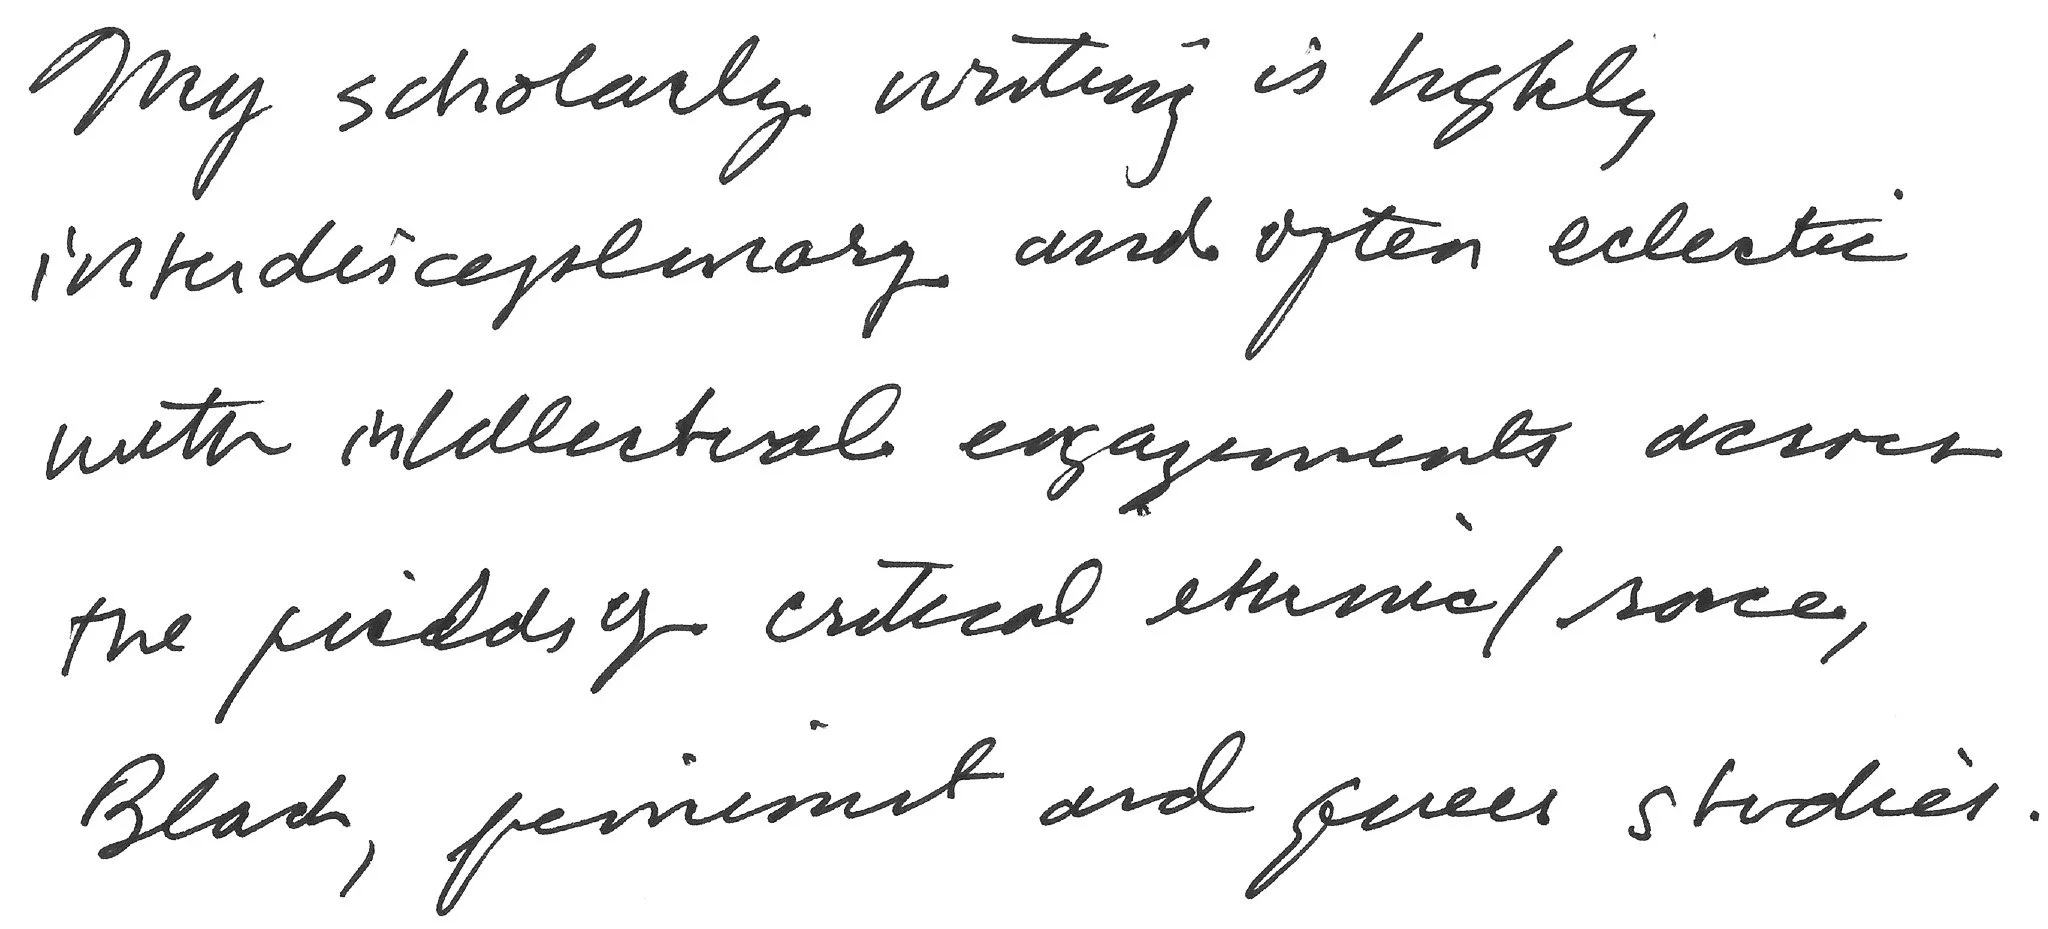 My scholarly writing is highly
interdisciplinary and often eclectic
with intellectual engagements across
the fields of critical ethnic/race,
Black, feminist and queer studies.